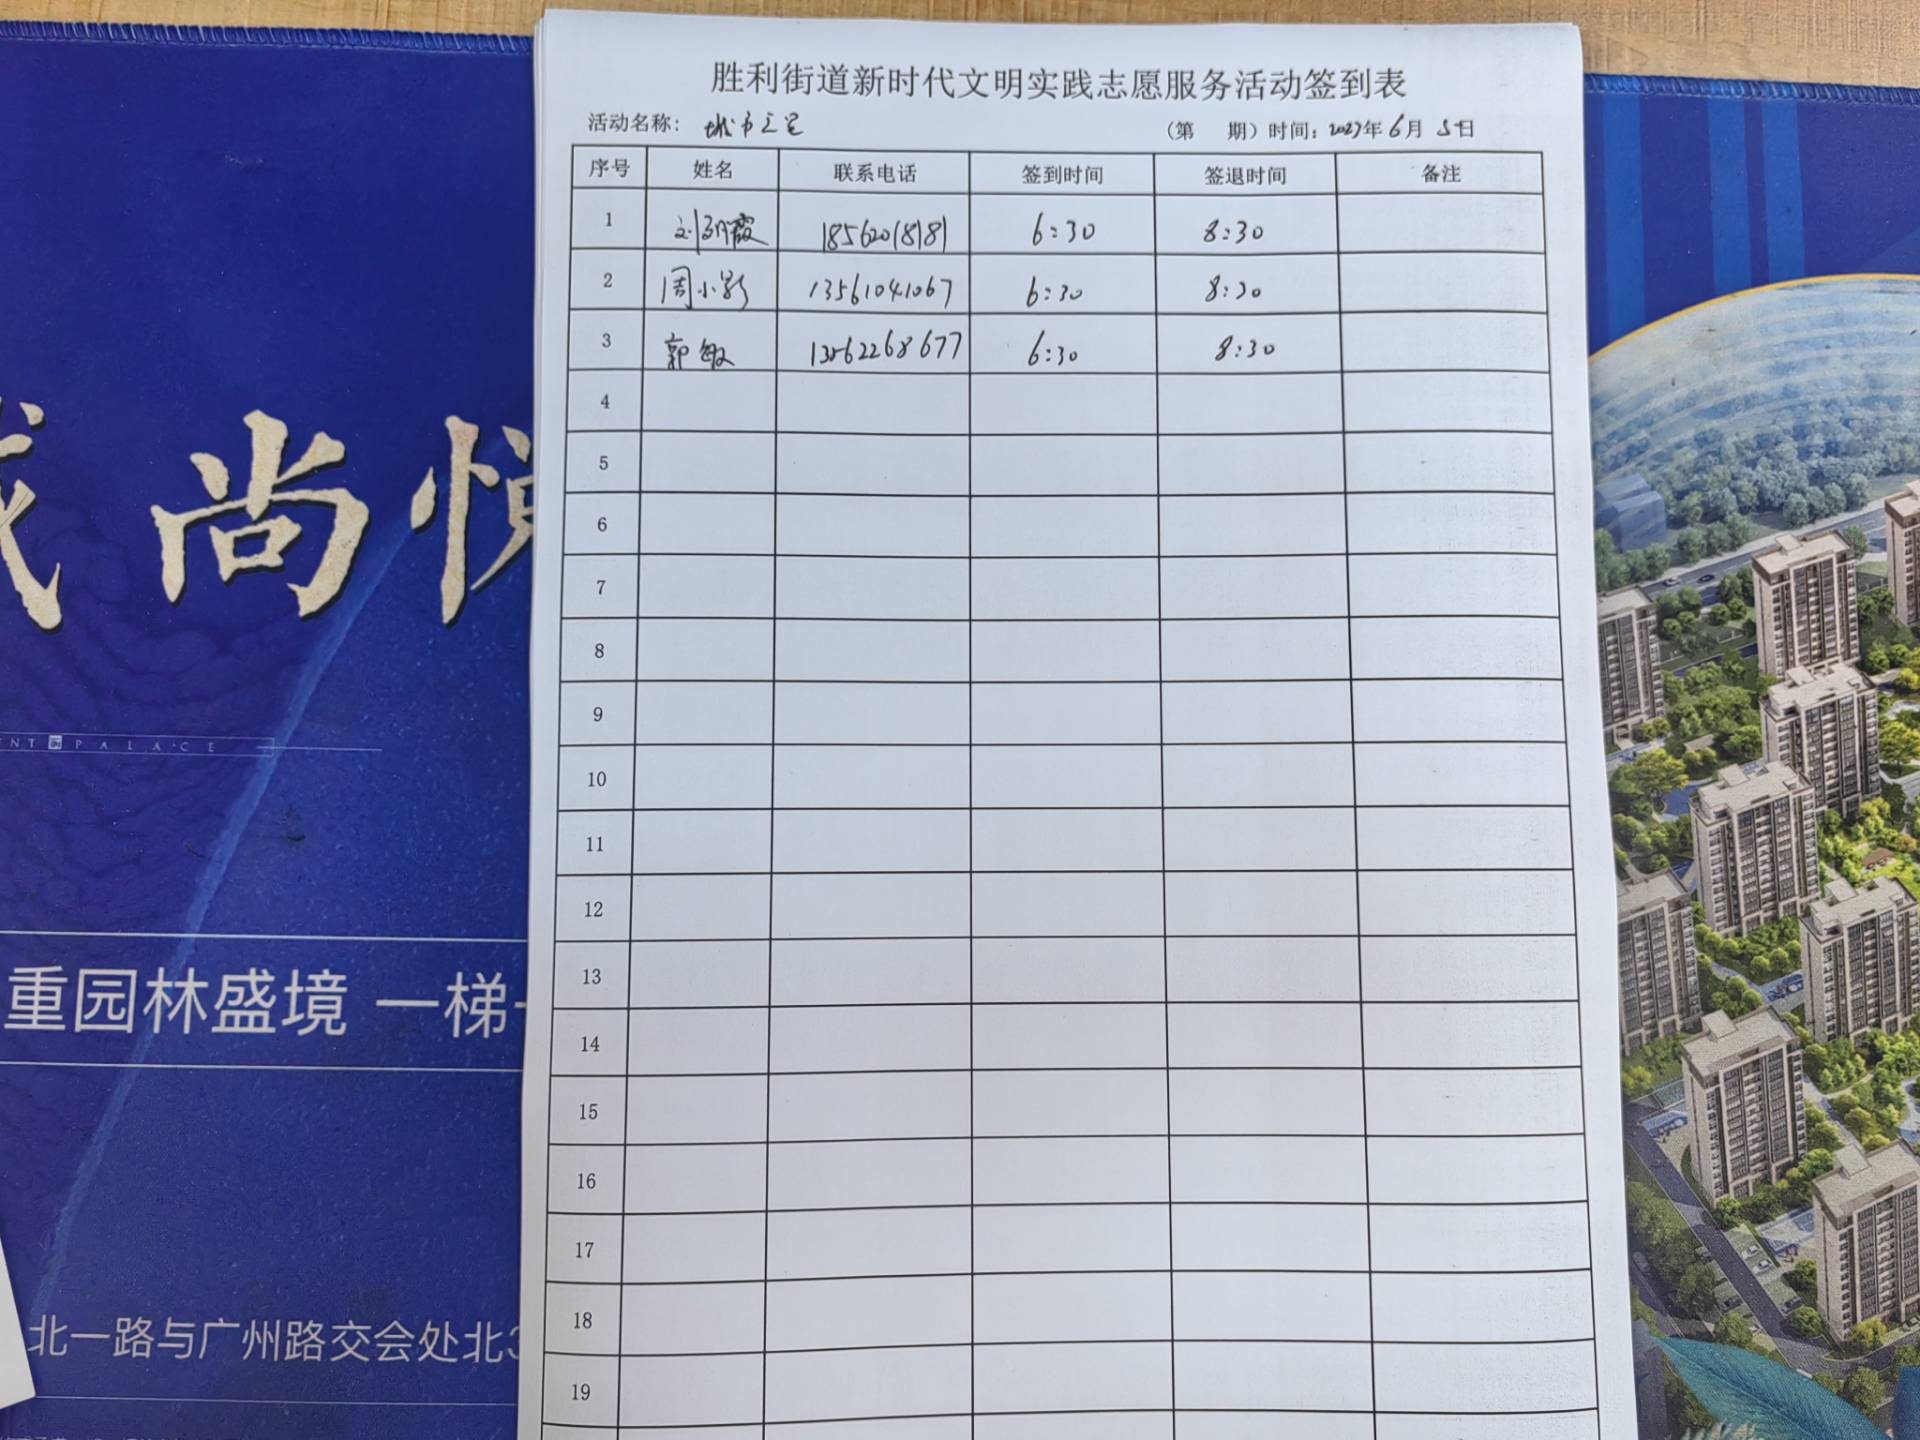 胜利街道新时代文明实践志愿服务活动签到表
活动名称： 城市之星
（第 期）时间：2023年6月5日
序号 姓名 联系电话 签到时间 签退时间 备注
1 刘 霞 18562018181 6:30 8:30
2 周小影 13561041067 6:30 8:30
3 郭敏 13562268677 6:30 8:30
4
5
6
7
8
9
10
11
12
13
14
15
16
17
18
19
尚悦
NT PALACE
重园林盛境 一梯
北一路与广州路交会处北3